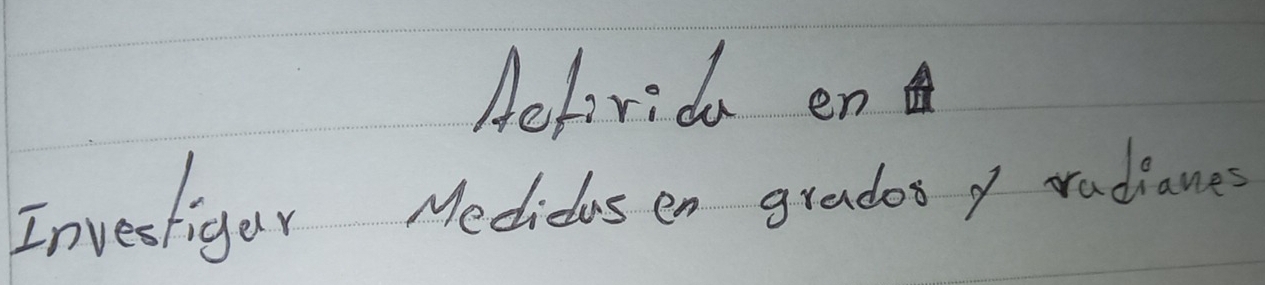 Activida en
Investigar Medidas en grados y radianes